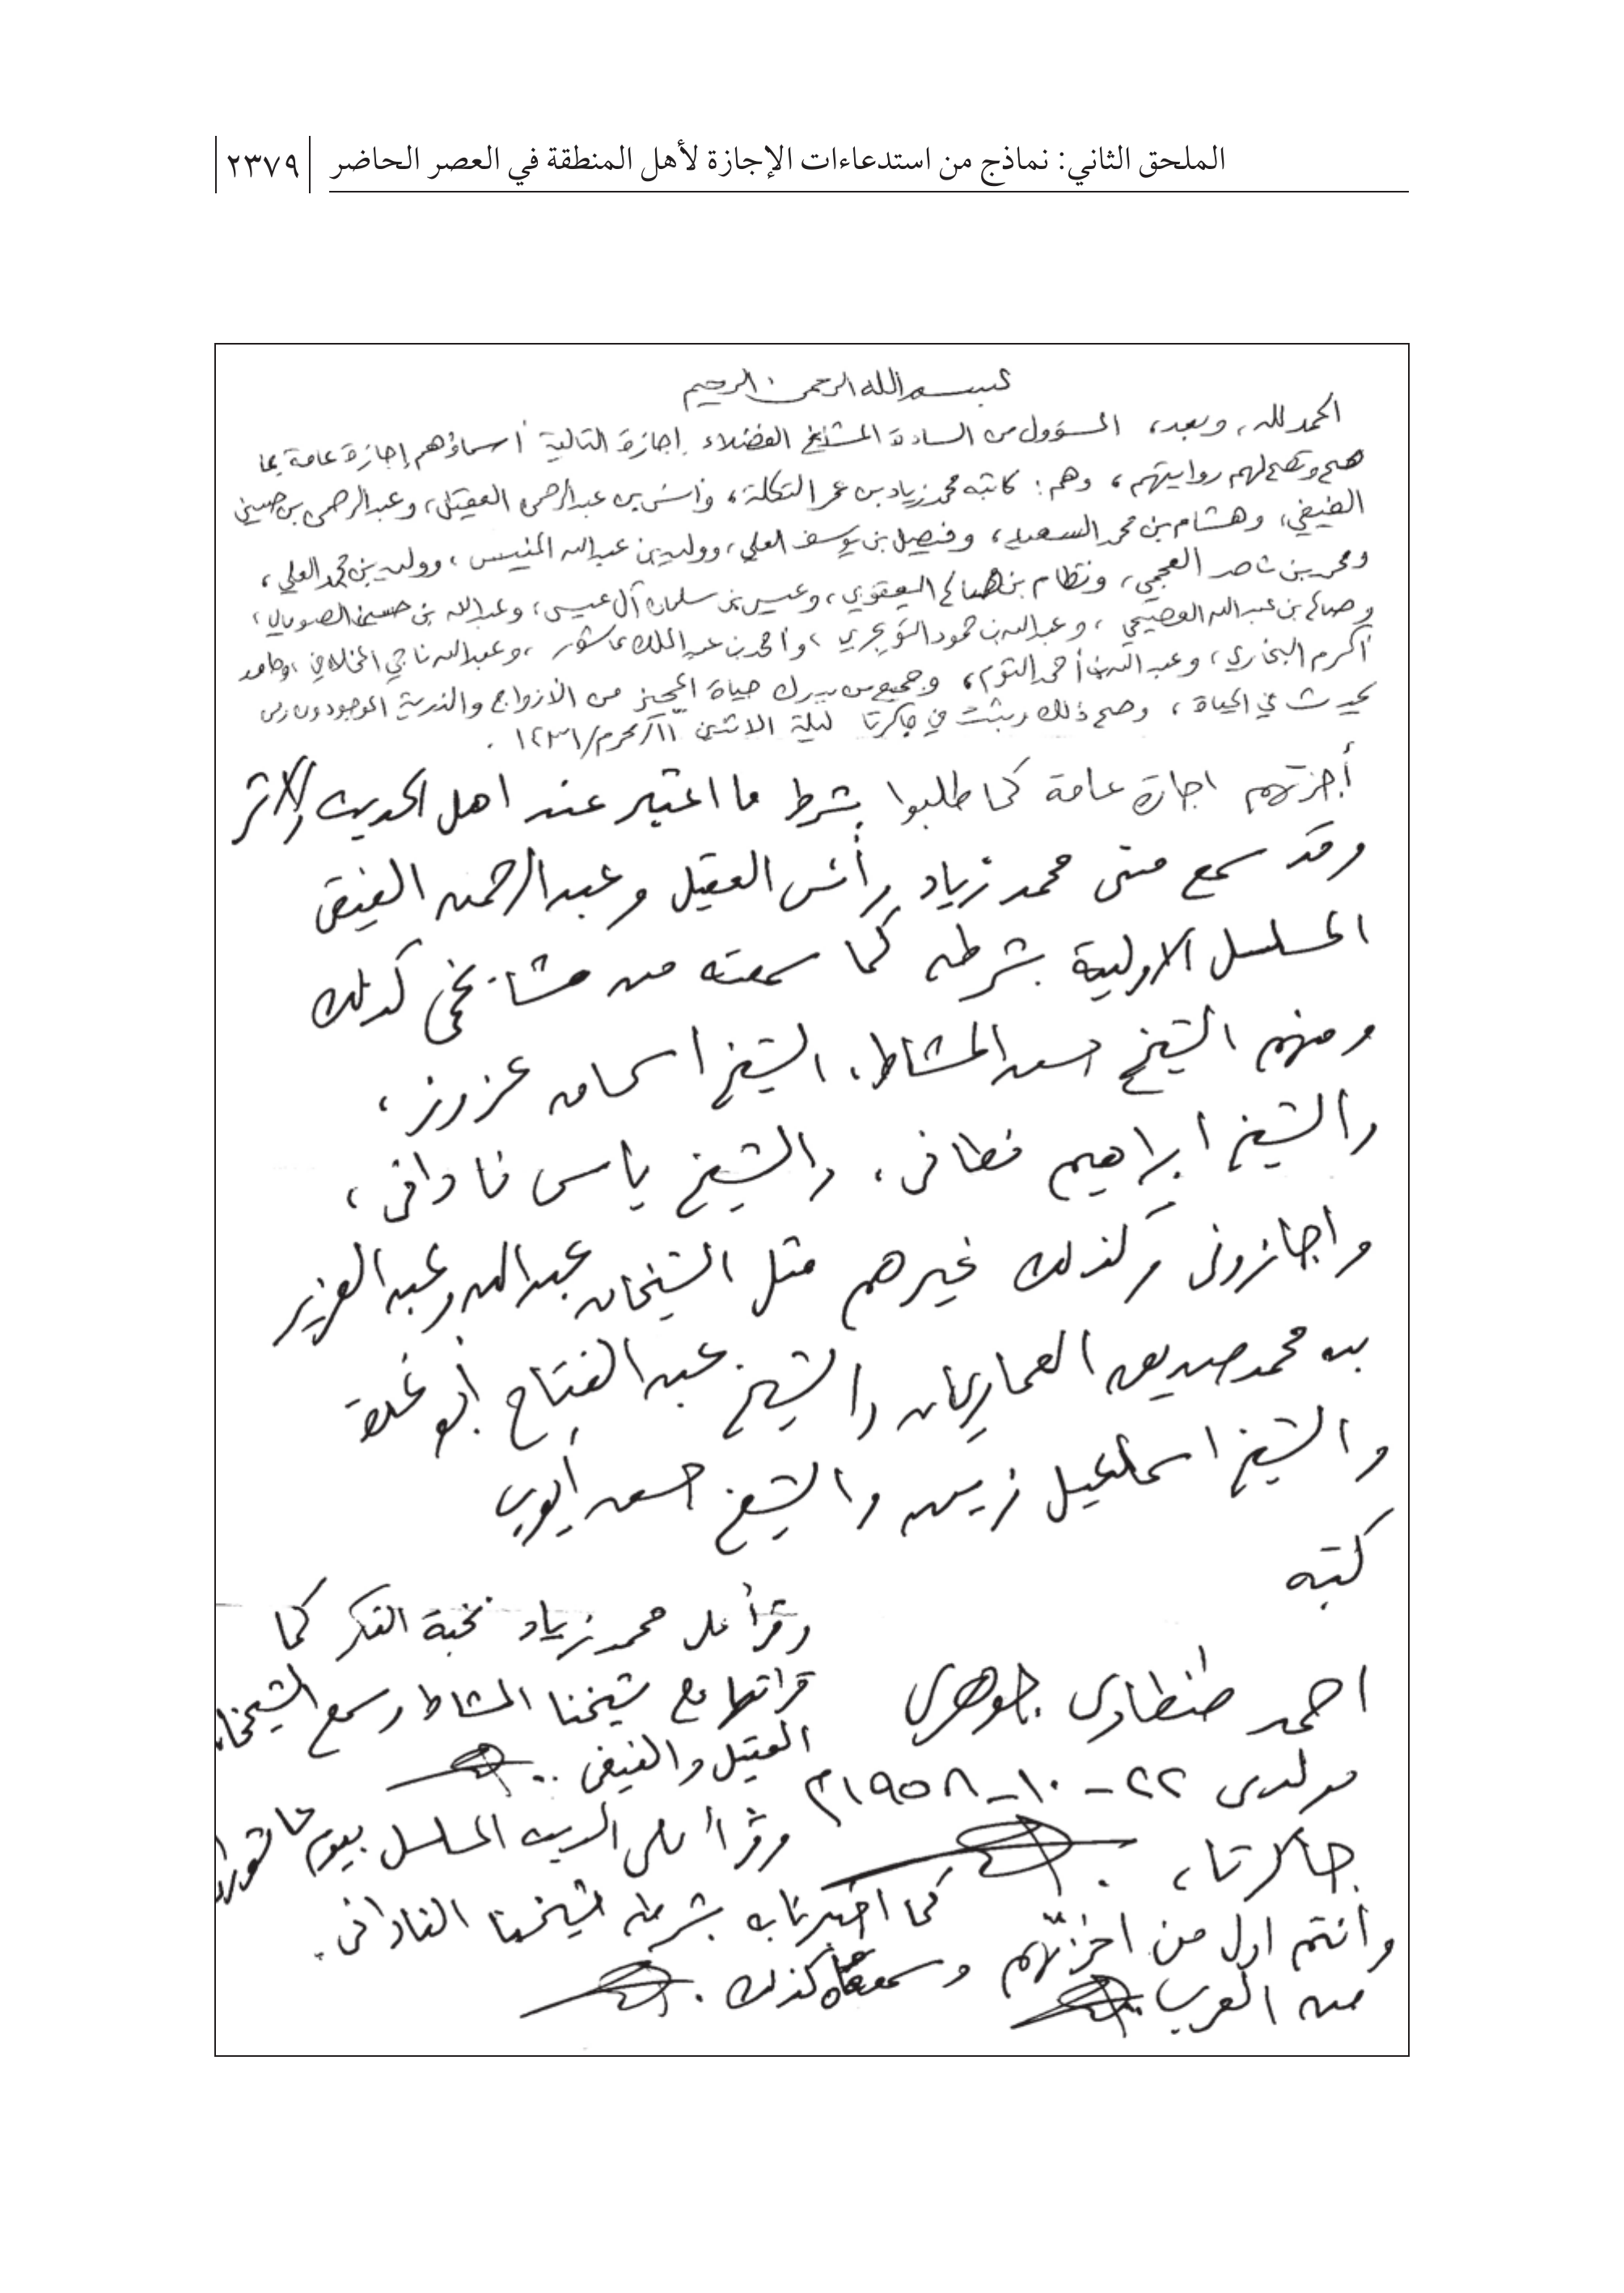 الملحق الثاني: نماذج من استدعاءات الإجازة لأهل المنطقة في العصر الحاضر
٢٣٧٩
بسم الله الرحمن الرحيم
الحمد لله، وبعد، المسؤول من السادة المشايخ الفضلاء إجازة التالية أسماؤهم إجازة عامة بما
صح وتصح لهم روايتهم، وهم: كاتبه محمد زياد بن عمر التكلة، وأنس بن عبدالرحمن العقيل، وعبدالرحمن بن حسين
الفيفي، وهشام بن محمد السعيد، وفيصل بن يوسف العلي، ووليد بن عبدالله المنيس، ووليد بن محمد العلي،
ومحمد بن ناصر العجمي، ونظام بن صالح اليعقوبي، وعيسى بن سلمان آل عيسى، وعبدالله بن حسين الصومالي،
وصالح بن عبدالله العصيمي، وعبدالله بن حمود التويجري، وأحمد بن عبدالملك عاشور، وعبدالله ناجي المخلافي، وحامد
أكرم البخاري، وعبدالله بن أحمد التوم، وجميع من يدرك حياة المجيز من الأزواج والذرية الموجودون ومن
يحدث في الحياة، وصح ذلك وثبت في جاكرتا ليلة الاثنين ١١/محرم/١٤٣١.
أجزتهم اجازة عامة كما طلبوا بشرط ما اعتبر عند اهل الحديث والاثر
وقد سمع منى محمد زياد وأنس العقيل وعبدالرحمن الفيفى
المسلسل الاولية بشرطه كما سمعته من مشايخى كذلك
ومنهم الشيخ حسن المشاط، الشيخ اسحاق عزوز،
والشيخ ابراهيم فطانى، والشيخ ياسين فادانى،
واجازونى وكذلك غيرهم مثل الشيخان عبدالله وعبد العزيز
بن محمد صديق الغماريان والشيخ عبد الفتاح أبو غدة
والشيخ اسماعيل زين والشيخ حسن أيوب
كتبه
احمد طنطاوى جوهرى
مولدى ٢٢ - ١٠ - ١٩٥٨م
جاكرتا،
وأنتم اول من اجزتهم
من العرب
وقرأ على محمد زياد نخبة الفكر كما
قرأتها مع شيخنا المشاط وسمع الشيخان
العقيل والفيفى ..
وقرأ على الحديث المسلسل بيوم عاشوراء
كما اخبرنا به بشرطه شيخنا الفادانى.
وسمعاه كذلك.